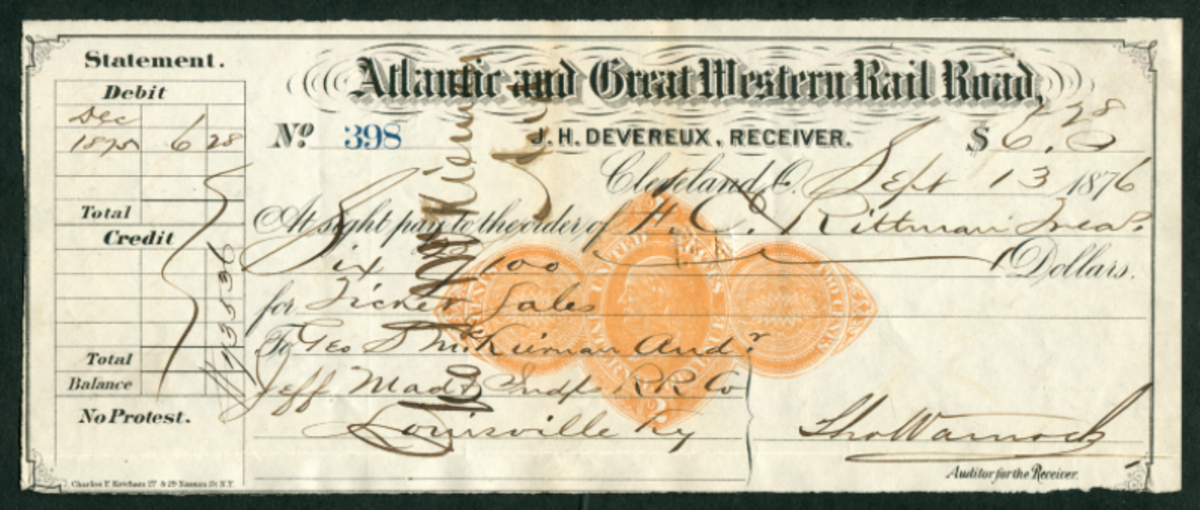 Statement.
Debit
Dec
1875 6 28
Total
Credit
Total
Balance
No Protest.
Atlantic and Great Western Rail Road,
No 398
J. H. DEVEREUX, RECEIVER.
$ 6.28
Cleveland, O. Sept 13 1876
At sight pay to the order of H. C. Rittman Treas.
Six 28/100 Dollars.
for Ticket Sales
To Geo S McKiernan Audr
Jeff Mad & Indps RR Co
Louisville Ky
Tho Warnock
Auditor for the Receiver.
Charles F. Ketcham 27 & 29 Nassau St N.Y.